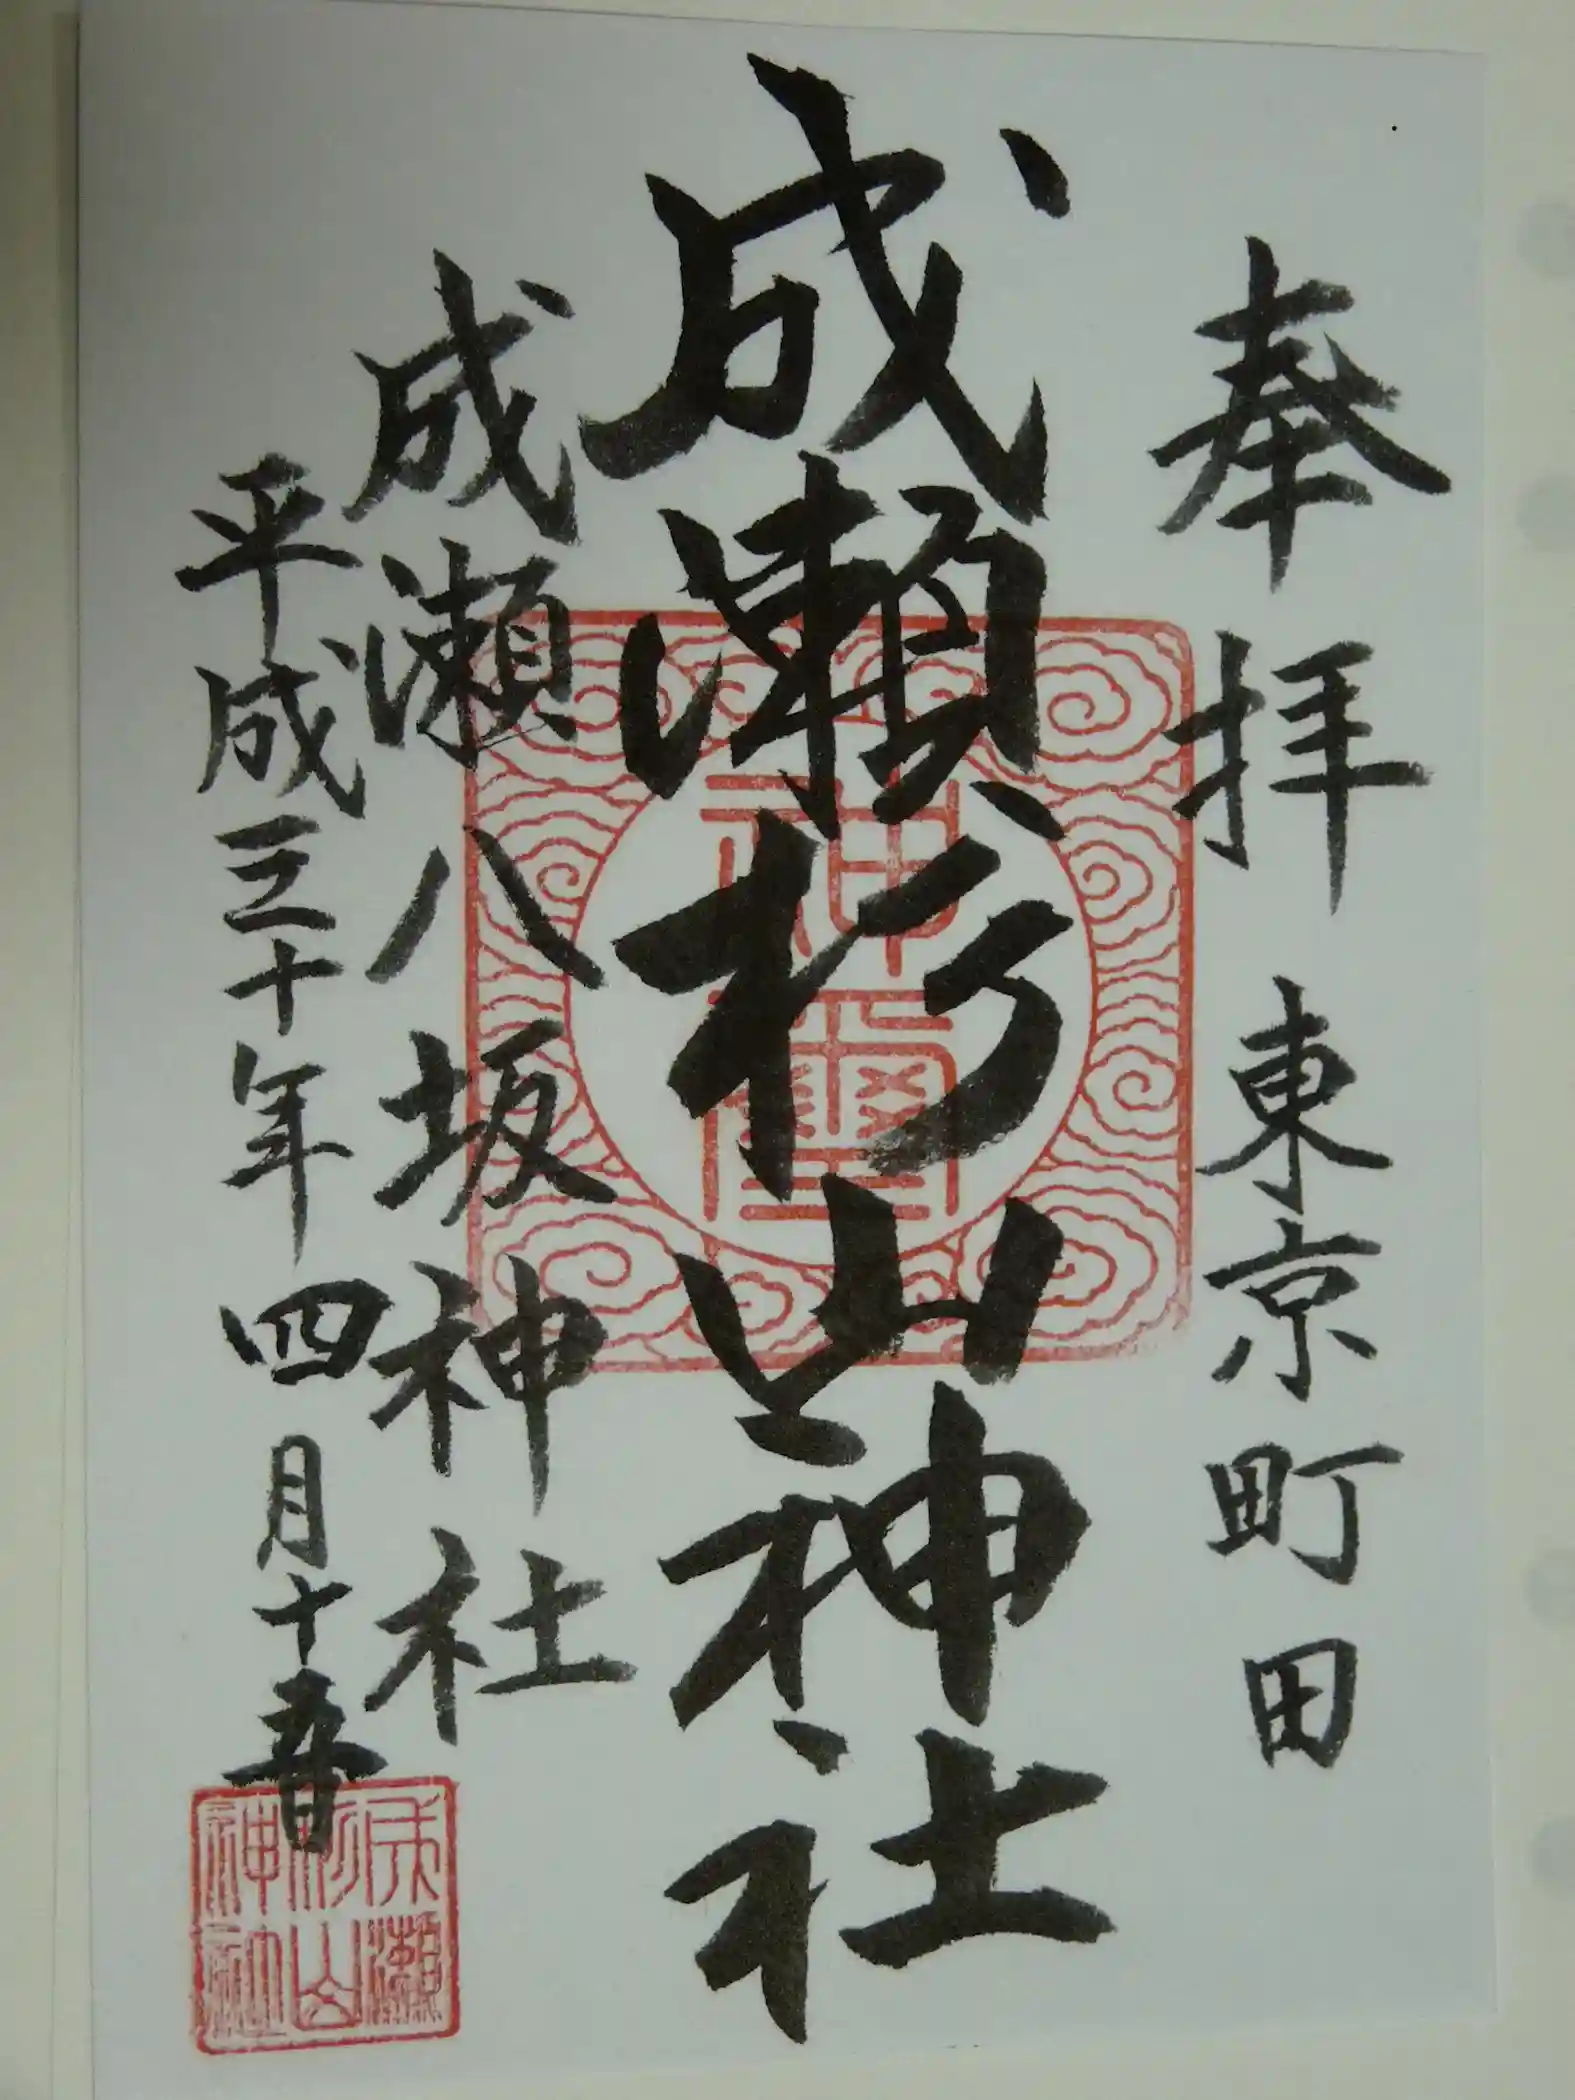 奉拝 東京町田
成瀬杉山神社
成瀬八坂神社
平成三十年四月十五日
神璽
成瀬
杉山
神社